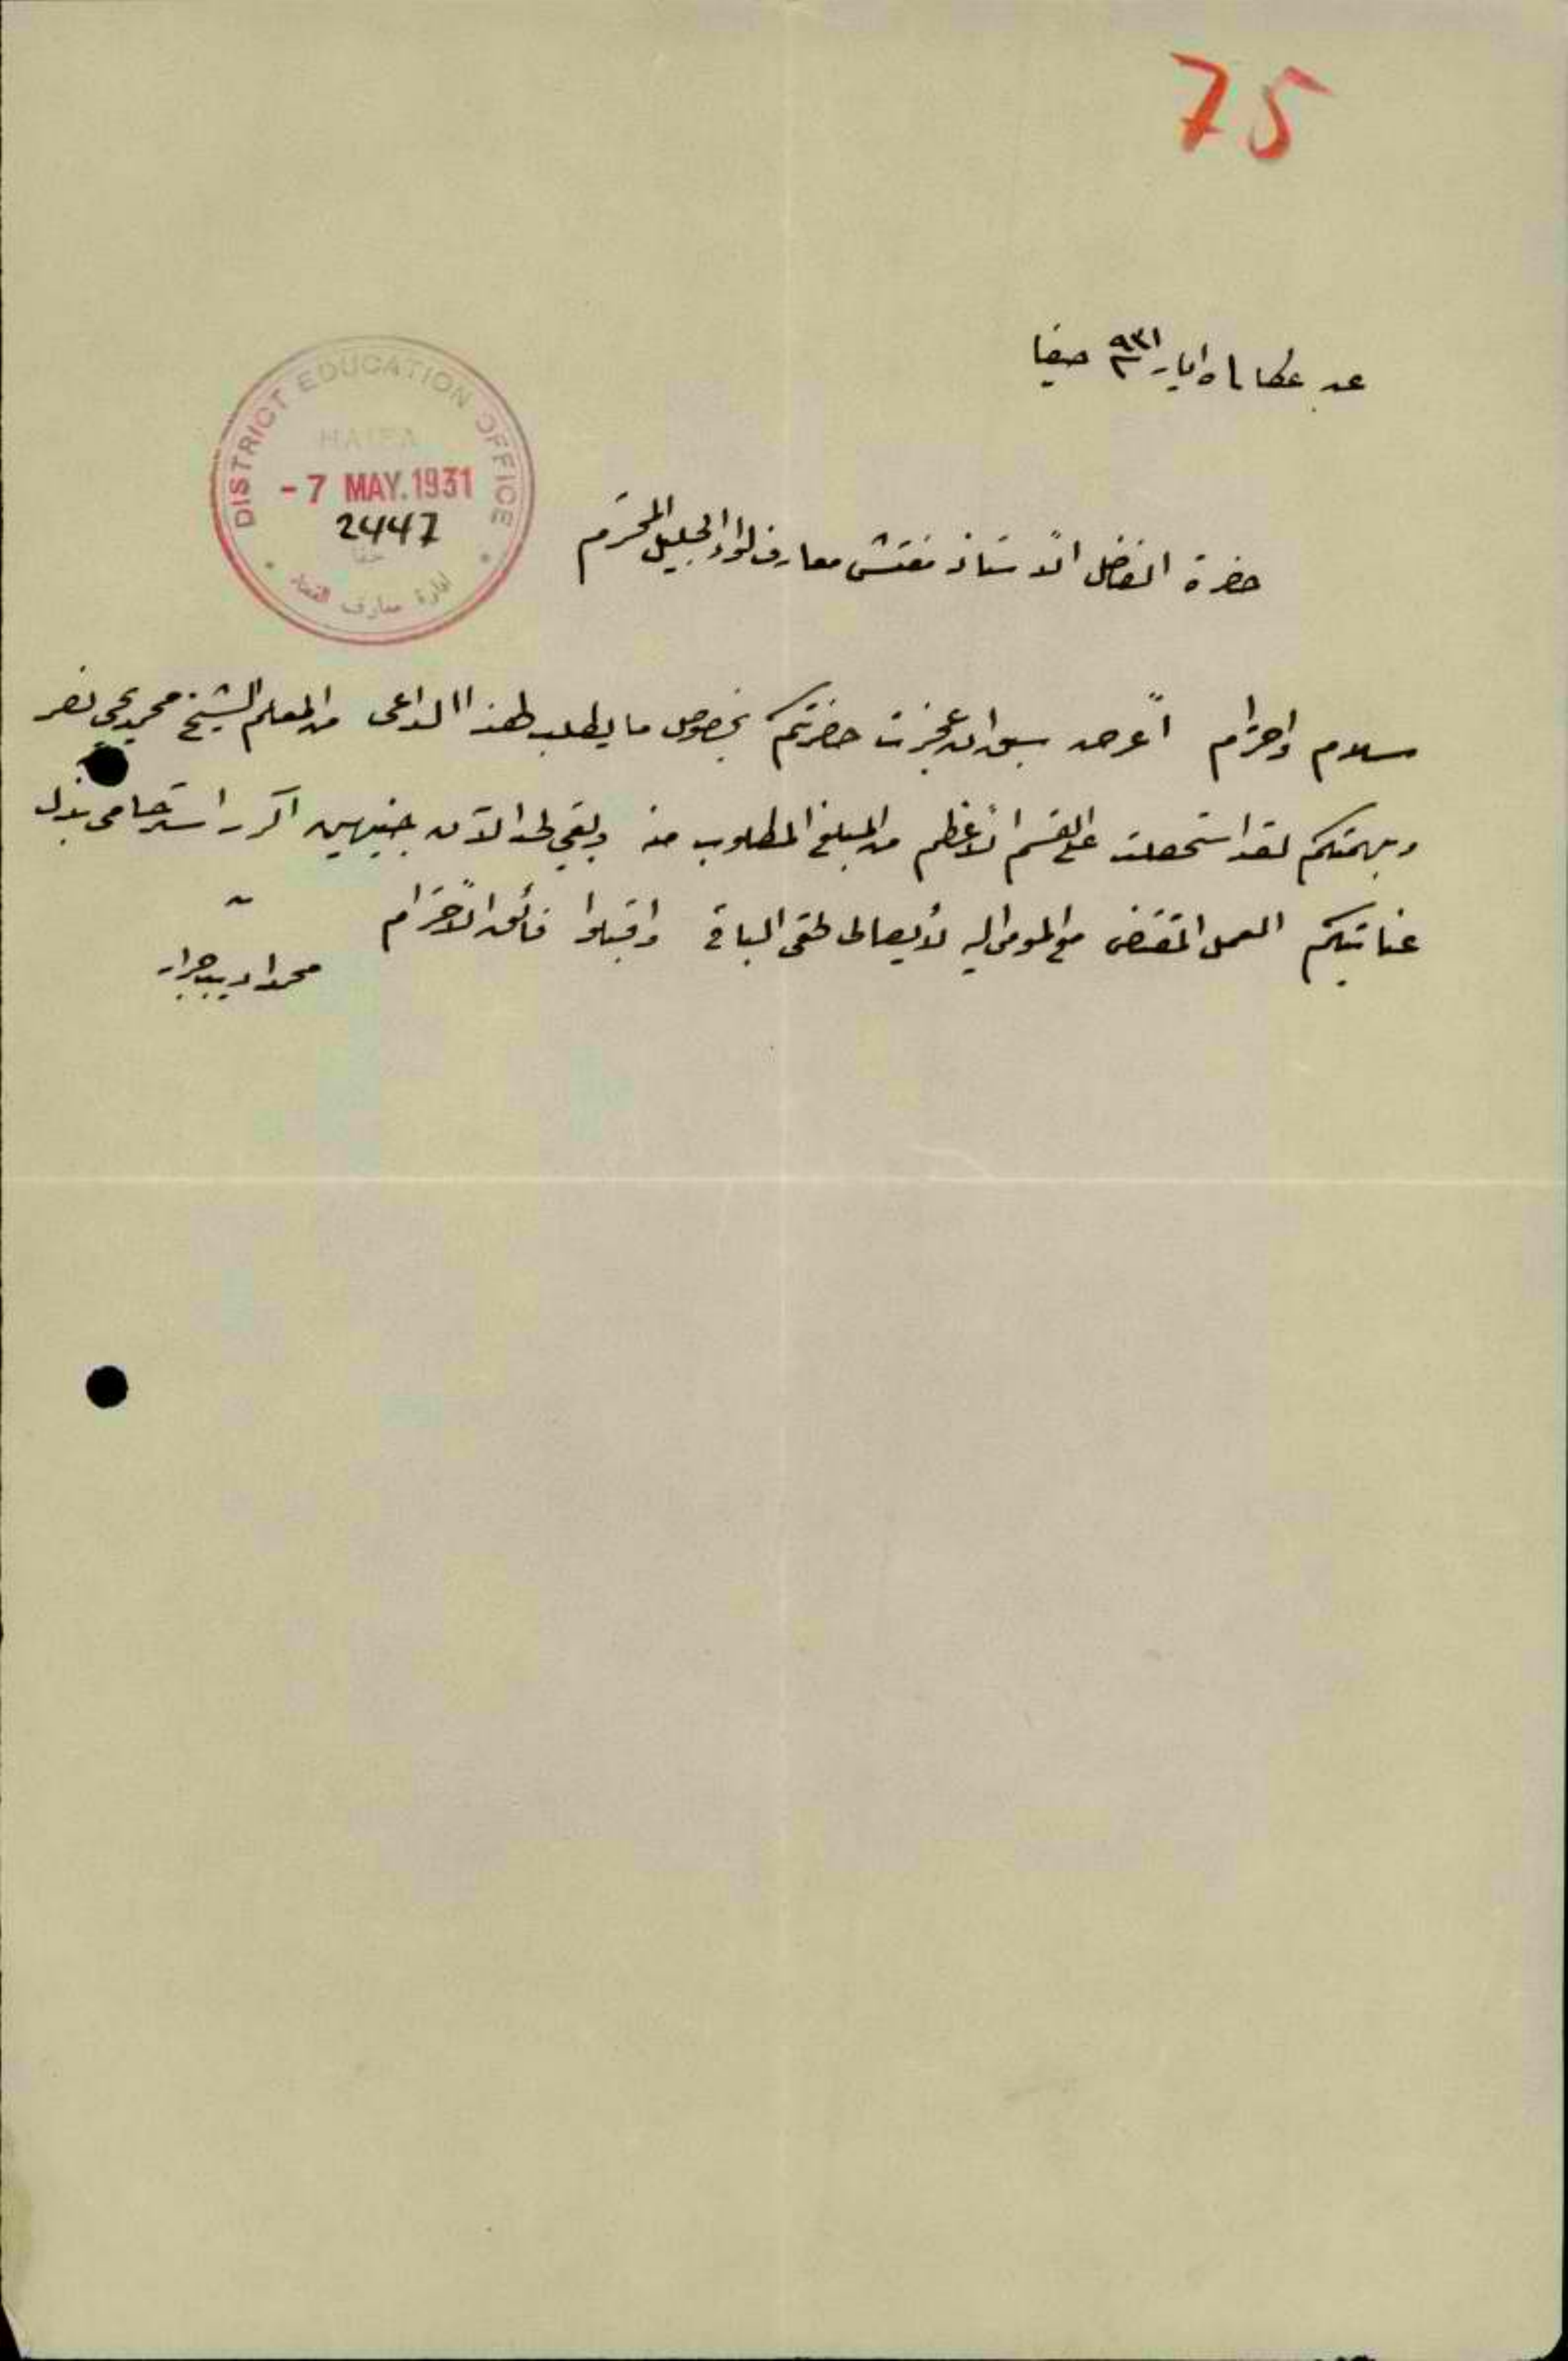 75
عن عكا ٥ ايار ٩٣١ حيفا
DISTRICT EDUCATION OFFICE
HAIFA
- 7 MAY. 1931
2447
ادارة معارف
حضرة الفاضل الأستاذ مفتش معارف لواء الجليل المحترم
سلام واحترام أعرض سبق ان عجزت حضرتكم بخصوص ما يطلب لهذا الداعي من المعلم الشيخ محمد نمر
وبهمتكم لقد استحصلت على القسم الأعظم من المبلغ المطلوب منه وبقي لحد الآن جنيهين اكرر استرحامي ببذل
عنايتكم العمل المقتضى مع المومى اليه لأيصال حقي الباقي واقبلوا فائق الأحترام
محمد اديب جرار